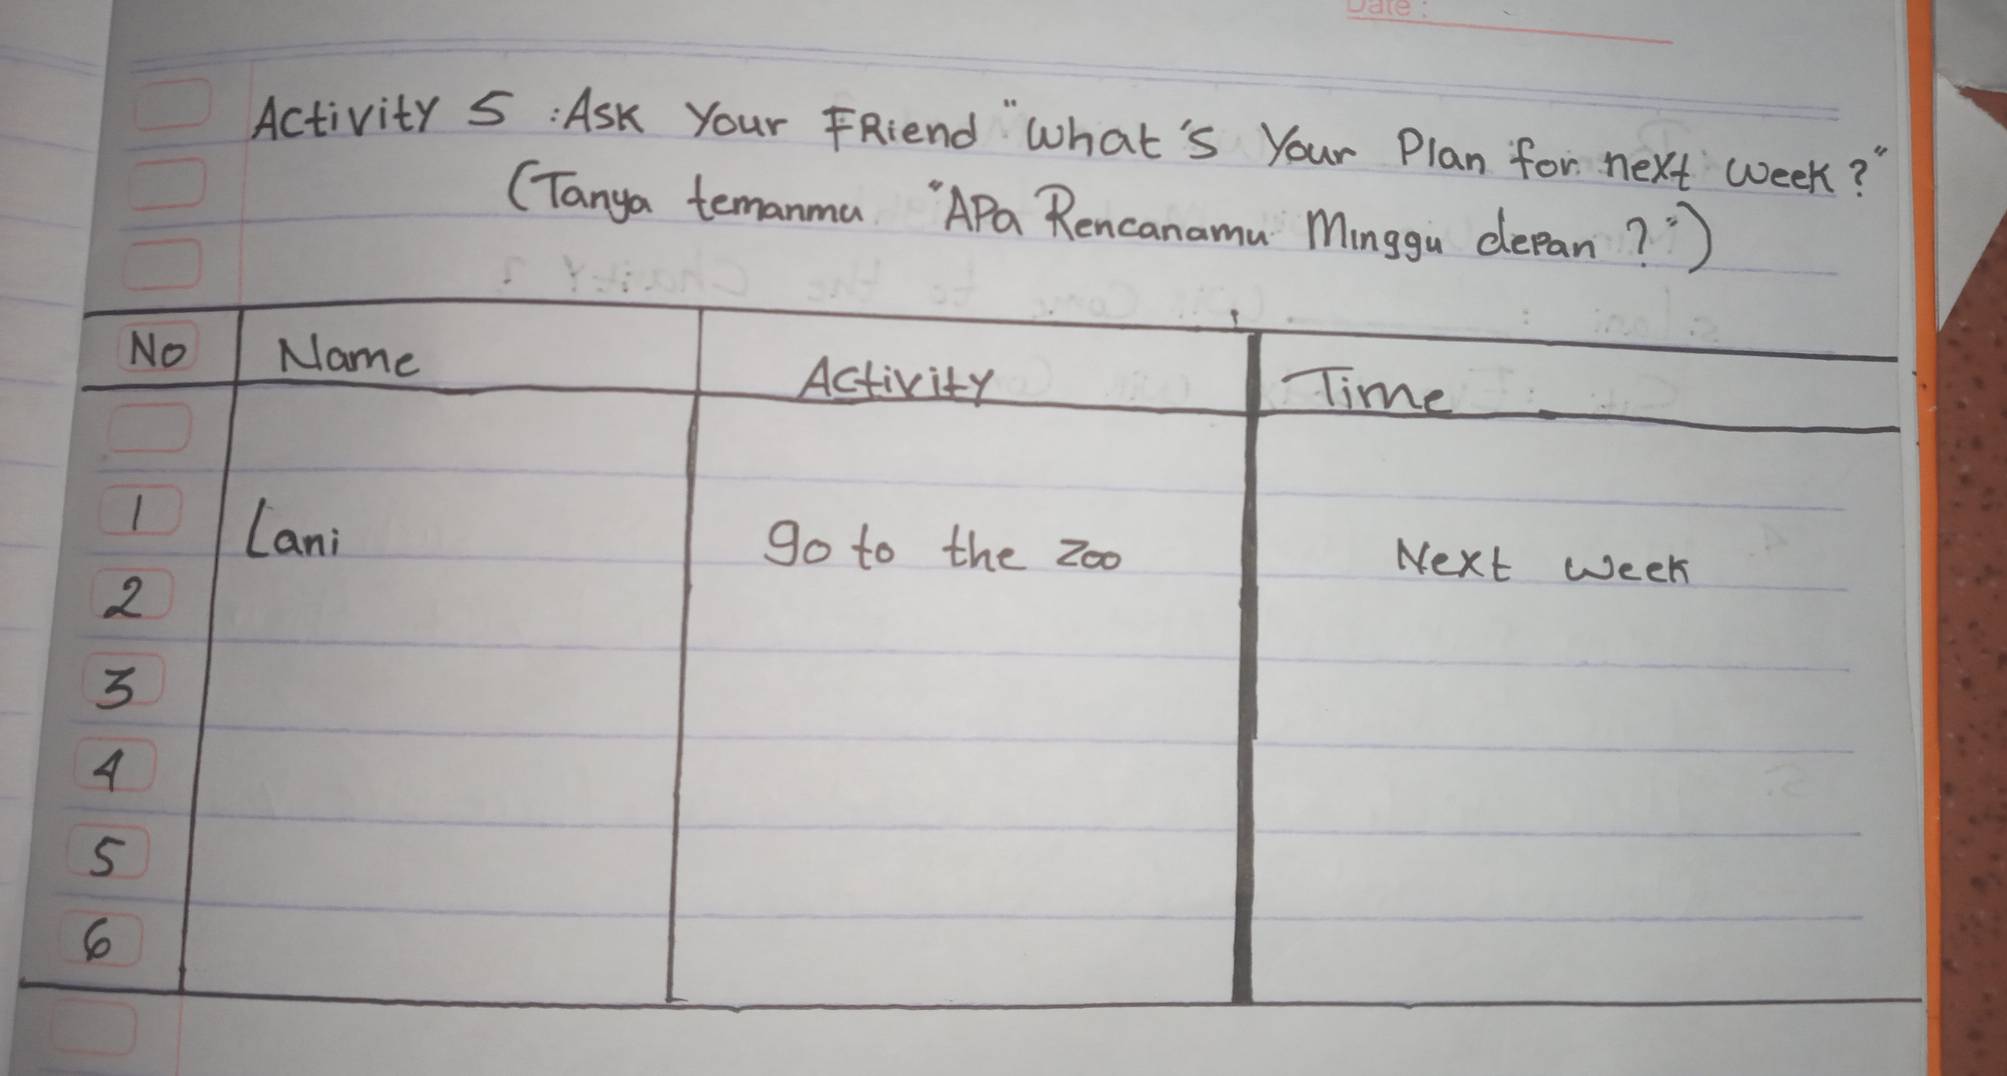 Date :
Activity 5 : Ask Your Friend "What's Your Plan for next week ?"
(Tanya temanmu "Apa Rencanamu Minggu depan ?")
No Name Activity Time
1 Lani go to the zoo Next week
2
3
4
5
6